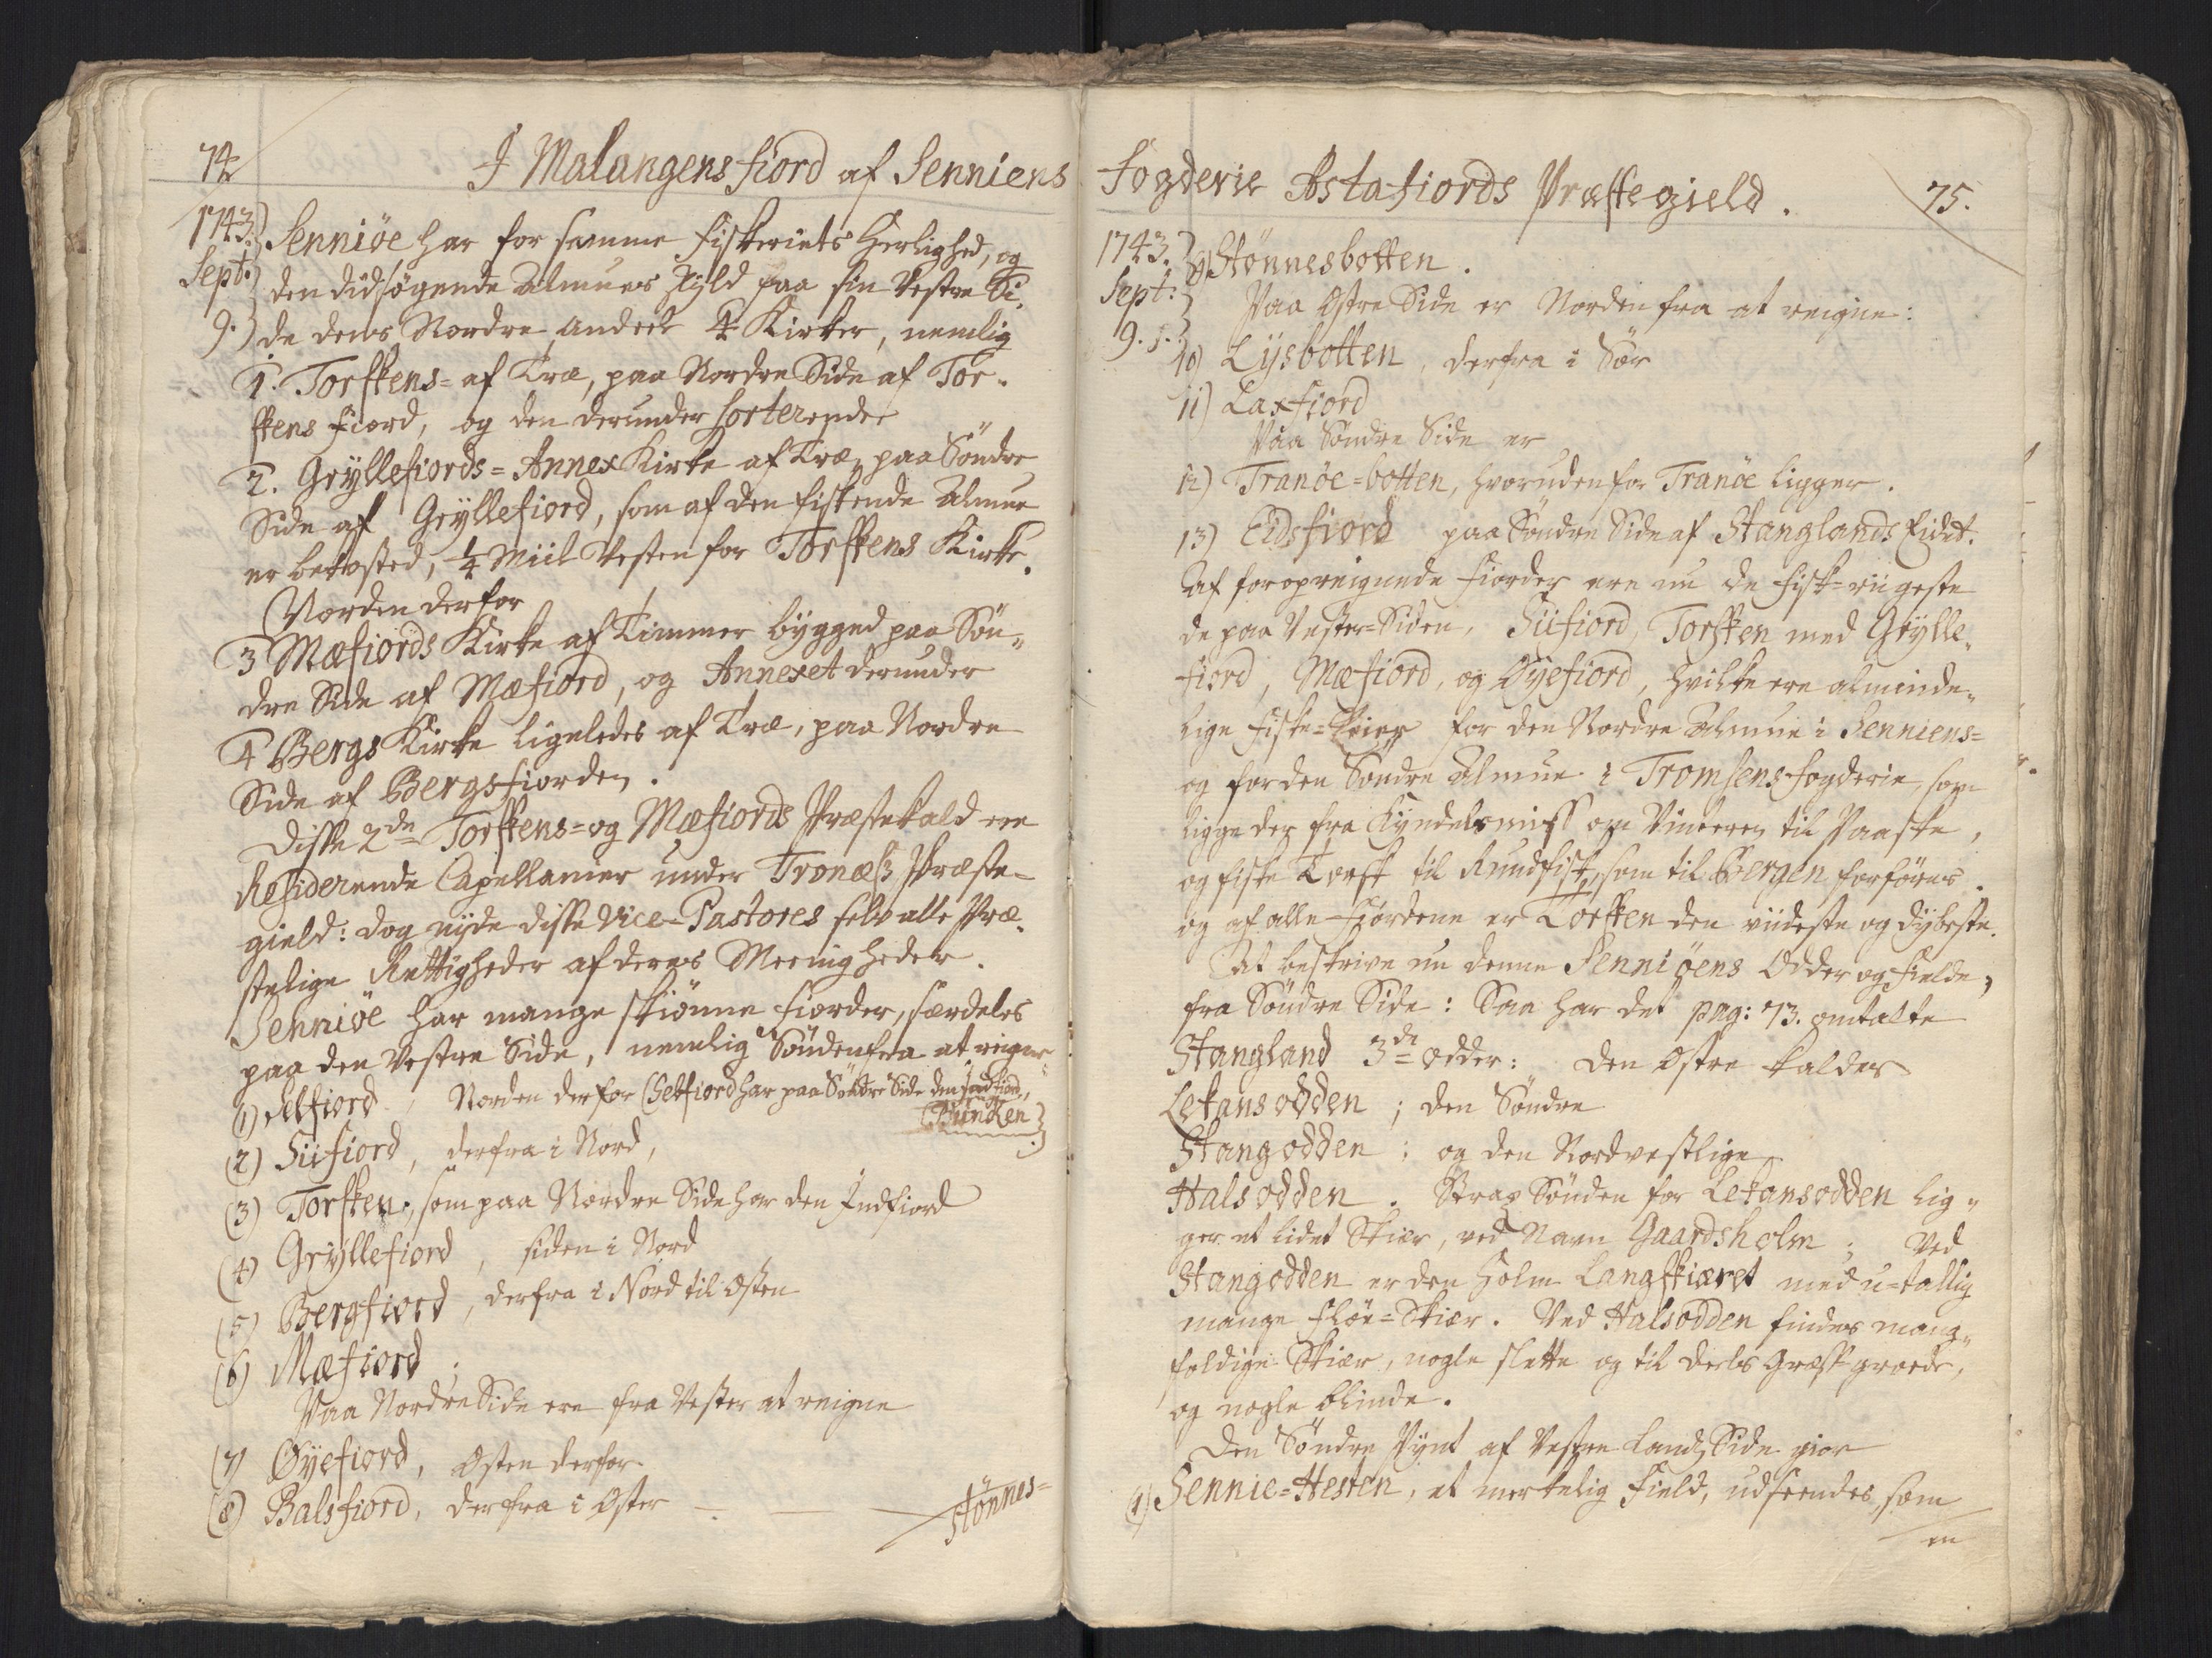 74
I Malangens fiord af Senniens
1743.
Sept:
9.
Senniöe har for samme fiskeriets Herlighed, og
den didsøgende Almues skyld paa sin Vestre Si-
de dens Nordre andeel 4 Kirker, nemlig
1. Torskens= af Træ, paa Nordre Side af Tor-
skens fiord, og den derunder sorterende
2. Gryllefiords= Annex Kirke af Træ, paa Söndre
Side af Gryllefiord, som af den fiskende Almue
er bekosted, 1/4 Miil Vesten for Torskens Kirke.
Norden derfor
3 Mæfiords Kirke af Timmer bygged paa Sön-
dre Side af Mæfiord, og Annexet derunder
4 Bergs Kirke ligeledes af Træ, paa Nordre
Side af Bergsfiorden.
Disse 2de Torskens= og Mæfiords Præstekald ere
Residerende Capellanier under Tronæss Præste-
gield: dog nyde disse Vice-Pastores selv alle Præ-
stelige Rettigheder af deres Meenigheder.
Senniöe har mange skiønne fiorder, særdeles
paa den Vestre Side, nemlig Söndenfra at reigne
(1) Selfiord, Norden derfor (Selfiord har paa Söndre Side den Indfiord,
Bunken)
(2) Siifiord, derfra i Nord,
(3) Torsken, som paa Nordre Side har den Indfiord
(4) Gryllefiord, siden i Nord
(5) Bergfiord, derfra i Nord til Osten
(6) Mæfiord.
Paa Nordre Side ere fra Vester at reigne
(7) Oyefiord, Osten derfor
(8) Balsfiord, derfra i Oster
Stönnes=
Fogderie Astafiords Præstegield.
75.
1743.
Sept:
9. s.
9) Stönnesbotten.
Paa Ostre Side er Norden fra at reigne:
10) Lysbotten, derfra i Sör
11) Laxfiord
Paa Söndre Side er
12) Tranöe=botten, hvorudenfor Tranöe ligger.
13) Eidsfiord paa Söndre Side af Stanglands Eidet.
Af foropreignede fiorder ere nu de fisk=riigeste
de paa Vester=Siden, Siifiord, Torsken med Grylle-
fiord, Mæfiord, og Oyefiord, hvilke ere alminde-
lige fiske= for den Nordre Almue i Senniens=
og for den Söndre Almue i Tromsens fogderie, som
ligge der fra Kyndelsmiss om Vinteren til Paaske,
og fiske Torsk til Rundfisk, som til Bergen forföres.
og af alle Fjordene er Torsken den viideste og dybeste.
At beskrive nu denne Senniöens Odder og Fielde,
fra Söndre Side: Saa har det pag: 73. omtalte
Stangland 3de Odder: Den Ostre kaldes
Lekansodden; den Söndre
Stangodden; og den Nordvestlige
Halsodden. Strax Sönden for Lekansodden lig-
ger et lidet Skiær, ved Navn Gaardsholm; Ved
Stangodden er den Holm Langskiæret med u=tallig
mange Flöe=Skiær. Ved Halsodden findes mang-
foldige Skiær, nogle slette og til deels Græss groede,
og nogle blinde.
Den Söndre Pynt af Vestre Landz Side giör
(1) Sennie=Hesten, et merkelig Field, udseendes, som
en